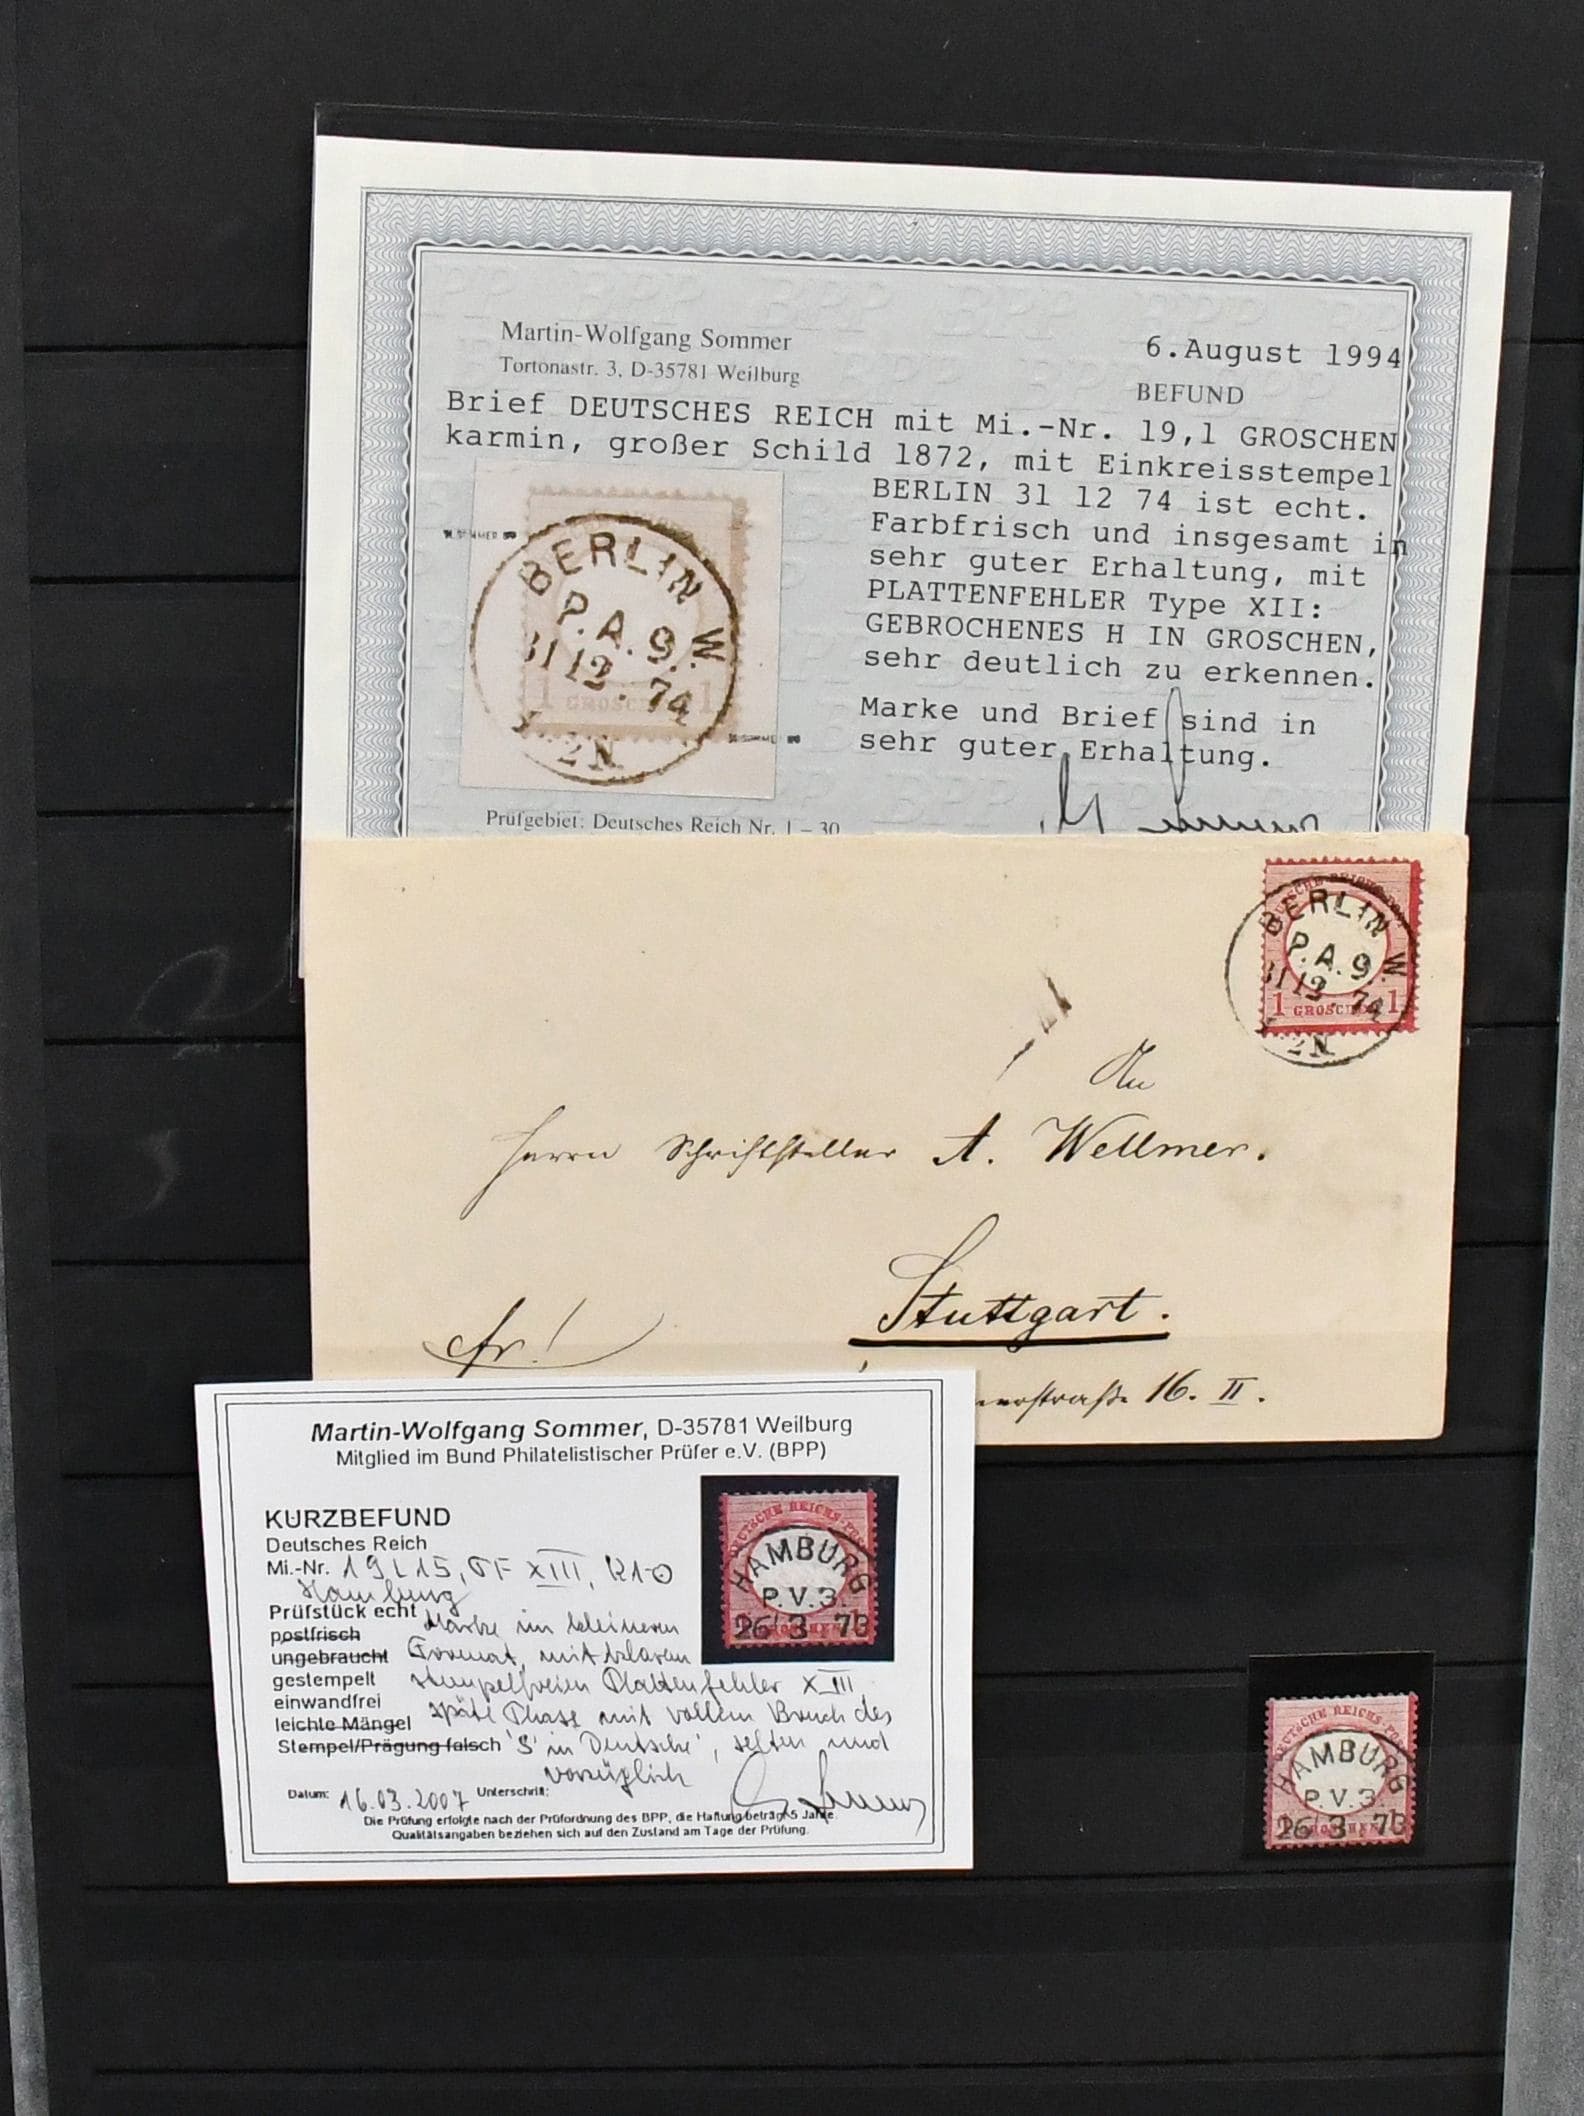 Martin-Wolfgang Sommer
Tortonastr. 3, D-35781 Weilburg
6.August 1994
BEFUND
Brief DEUTSCHES REICH mit Mi.-Nr. 19,1 GROSCHEN
karmin, großer Schild 1872, mit Einkreisstempel
BERLIN 31 12 74 ist echt.
Farbfrisch und insgesamt in
sehr guter Erhaltung, mit
PLATTENFEHLER Type XII:
GEBROCHENES H IN GROSCHEN,
sehr deutlich zu erkennen.
Marke und Brief sind in
sehr guter Erhaltung.
BERLIN W.
P.A.9.
31 12. 74
2N
Prüfgebiet: Deutsches Reich Nr. 1 – 30
BERLIN W.
P.A.9.
31 12. 74
1 GROSCHEN 1
2N
An
Herrn Schriftsteller A. Wellmer.
Stuttgart.
fr!
16. II.
Martin-Wolfgang Sommer, D-35781 Weilburg
Mitglied im Bund Philatelistischer Prüfer e.V. (BPP)
KURZBEFUND
Deutsches Reich
Mi.-Nr. 19 L15, PF XIII, K1-O
Hamburg
Prüfstück echt Marke im kleineren
postfrisch
ungebraucht Format, mit klarem
gestempelt stempelfreien Plattenfehler XIII
einwandfrei
leichte Mängel späte Phase mit vollem Bruch des
Stempel/Prägung falsch 'S' in Deutsche', selten und
vorzüglich
Datum: 16.03.2007 Unterschrift:
Die Prüfung erfolgte nach der Prüfordnung des BPP, die Haftung beträgt 5 Jahre.
Qualitätsangaben beziehen sich auf den Zustand am Tage der Prüfung.
DEUTSCHE REICHS-POST
HAMBURG
P.V.3.
26 3 73
DEUTSCHE REICHS-POST
HAMBURG
P.V.3.
26 3 73